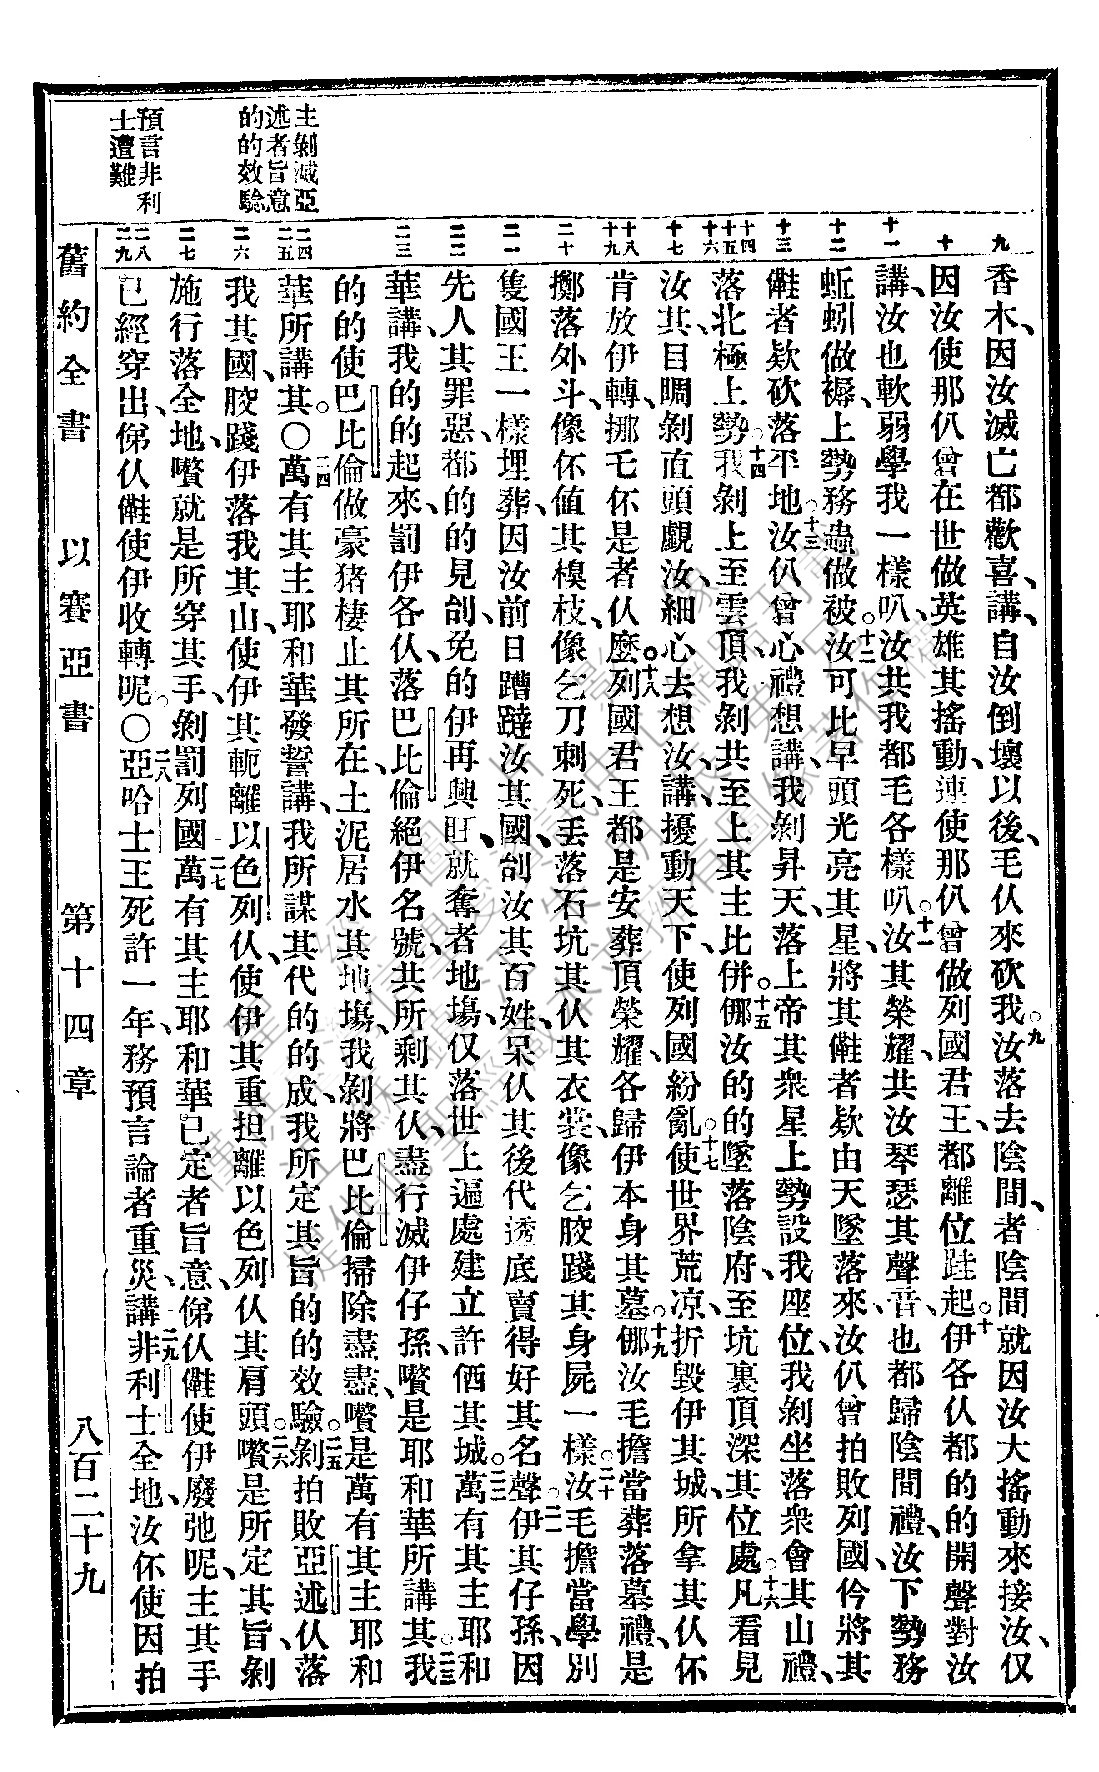 主剝滅亞
述者旨意
的的效驗
預言非利
士遭難
九
十
十一
十二
十三
十四
十五
十六
十七
十八
十九
二十
二一
二二
二三
二四
二五
二六
二七
二八
二九
香木、因汝滅亡都歡喜、講、自汝倒壞以後、毛仈來砍我。九汝落去陰間、者陰間就因汝大搖動來接汝、仅
因汝使那仈曾在世做英雄其搖動、連使那仈曾做列國君王、都離位跬起。十伊各仈都的的開聲對汝
講、汝也軟弱學我一樣叭、汝共我都毛各樣叭。十一汝其榮耀、共汝琴瑟其聲音、也都歸陰間禮、汝下勢務
蚯蚓做褥、上勢務蟲做被。十二汝可比早頭光亮其星、將其僆者欵由天墜落來、汝仈曾拍敗列國、仱將其
僆者欵砍落平地。十三汝仈曾心禮想講、我剝昇天、落上帝其衆星上勢設我座位、我剝坐落衆會其山禮、
落北極上勢。十四我剝上至雲頂、我剝共至上其主比併。十五㑚汝的的墜落陰府、至坑裏頂深其位處。十六凡看見
汝其、目睭剝直頭覷汝、細心去想汝、講、擾動天下、使列國紛亂。十七使世界荒凉、折毀伊其城、所拿其仈伓
肯放伊轉、挪乇伓是者仈麽。十八列國君王都是安葬頂榮耀、各歸伊本身其墓。十九㑚汝毛擔當葬落墓禮、是
擲落外斗、像伓值其模枝、像乞刀刺死、丟落石坑其仈其衣裳、像乞骹踐其身屍一樣。二十汝毛擔當學別
隻國王一樣埋葬、因汝前日蹧躂汝其國、刣汝其百姓、呆仈其後代透底賣得好其名聲。二一伊其仔孫、因
先人其罪惡、都的的見刣、免的伊再興旺、就奪者地塲、仅落世上遍處建立許價其城。二二萬有其主耶和
華講、我的的起來、罰伊各仈、落巴比倫絕伊名號、共所剩其仈、盡行滅伊仔孫、嚽是耶和華所講其。二三我
的的使巴比倫做豪猪棲止其所在、土泥居水其地塲、我剝將巴比倫掃除盡盡、嚽是萬有其主耶和
華所講其。○二四萬有其主耶和華發誓講、我所謀其代的的成、我所定其旨的的效驗。二五剝拍敗亞述仈落
我其國、骹踐伊落我其山、使伊其軛離以色列仈、使伊其重担離以色列仈其肩頭。二六嚽是所定其旨、剝
施行落全地、嚽就是所穿其手、剝罰列國。二七萬有其主耶和華已定者旨意、俤仈僆使伊廢弛呢、主其手
已經穿出、俤仈僆使伊收轉呢。○二八亞哈士王死許一年、務預言論者重災講、二九非利士全地、汝伓使因拍
舊約全書　以賽亞書　第十四章　八百二十九